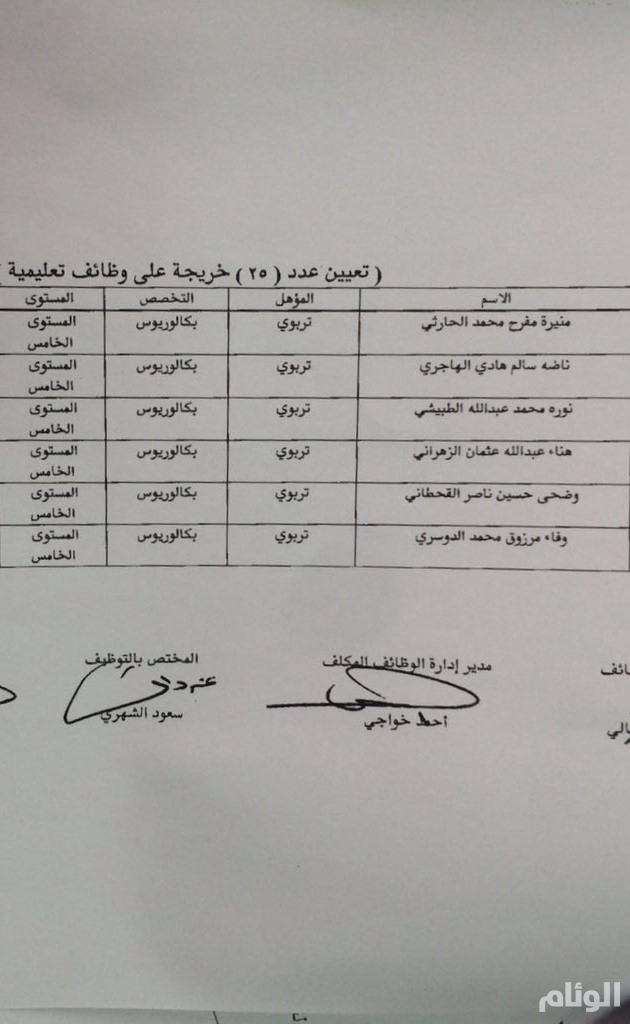 ( تعيين عدد ( ٢٥ ) خريجة على وظائف تعليمية )
الاسم المؤهل التخصص المستوى
منيرة مفرح محمد الحارثي تربوي بكالوريوس المستوى الخامس
ناضه سالم هادي الهاجري تربوي بكالوريوس المستوى الخامس
نوره محمد عبدالله الطبيشي تربوي بكالوريوس المستوى الخامس
هناء عبدالله عثمان الزهراني تربوي بكالوريوس المستوى الخامس
وضحى حسين ناصر القحطاني تربوي بكالوريوس المستوى الخامس
وفاء مرزوق محمد الدوسري تربوي بكالوريوس المستوى الخامس
مدير إدارة الوظائف المكلف المختص بالتوظيف
أحمد خواجي سعود الشهري
الوئام